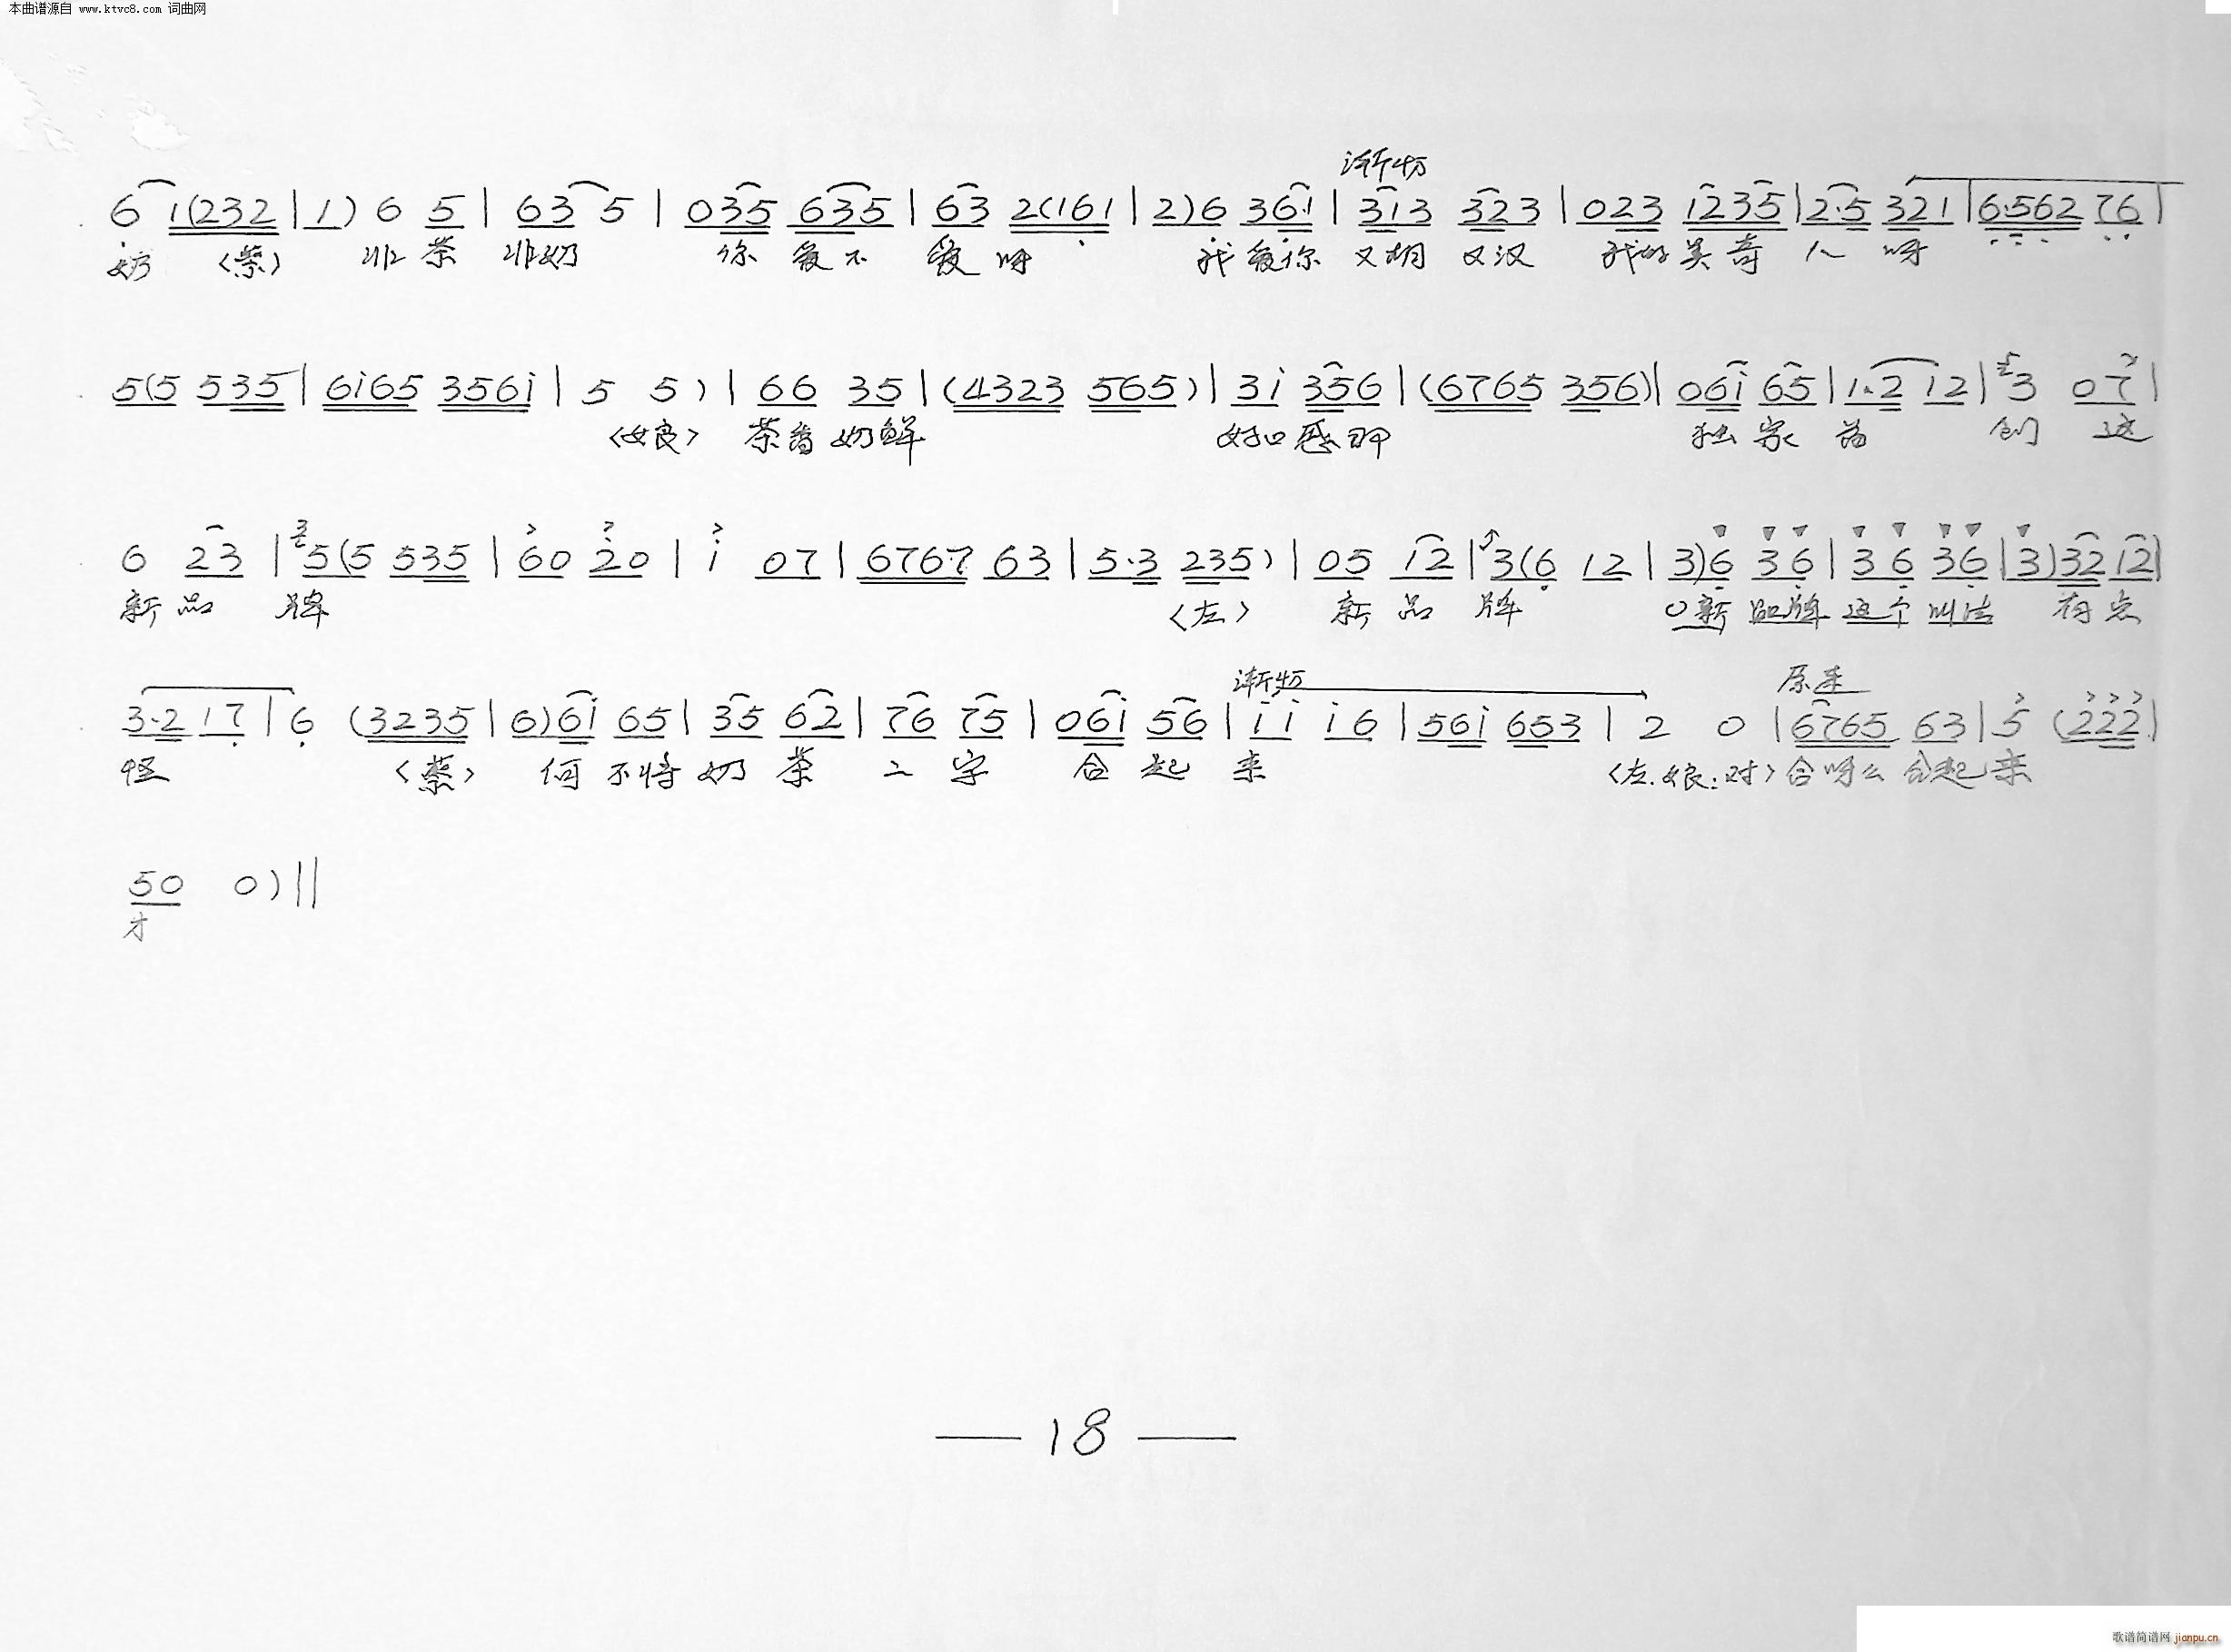 本曲谱源自 www.ktvc8.com 词曲网
渐切
6 1(232 | 1) 6 5 | 63 5 | 035 635 | 63 2(161 | 2)6 36·1 | 313 323 | 023 1235 | 2·5 321 | 6·562 76 |
奶 〈紫〉 非茶 非奶 你爱不 爱呀 我爱你 又胡 又汉 我的美奇 人 呀
5(5 535 | 6i65 356i | 5 5) | 66 35 | (4323 565) | 3i 356 | (6765 356) | 06i 65 | 1·2 12 | 3 07 |
〈娘〉 茶香奶鲜 好口感耶 独家 首 创 这
6 23 | 5(5 535 | 60 20 | i 07 | 6767 63 | 5·3 235) | 05 12 | 3(6 12 | 3)6 36 | 36 36 | 3)32 12 |
新品 牌 〈左〉 新品 牌 0新 品牌 这个 叫法 有点
渐切 原来
3·2 17 | 6 (3235 | 6)6i 65 | 35 62 | 76 75 | 06i 56 | ii i6 | 56i 653 | 2 0 | 6765 63 | 5 (222 |
怪 〈紫〉 何不将 奶茶 二字 合起 来 〈左.娘:对〉合呀么 合起来
50 0) ||
才
— 18 —
歌谱简谱网 jianpu.cn